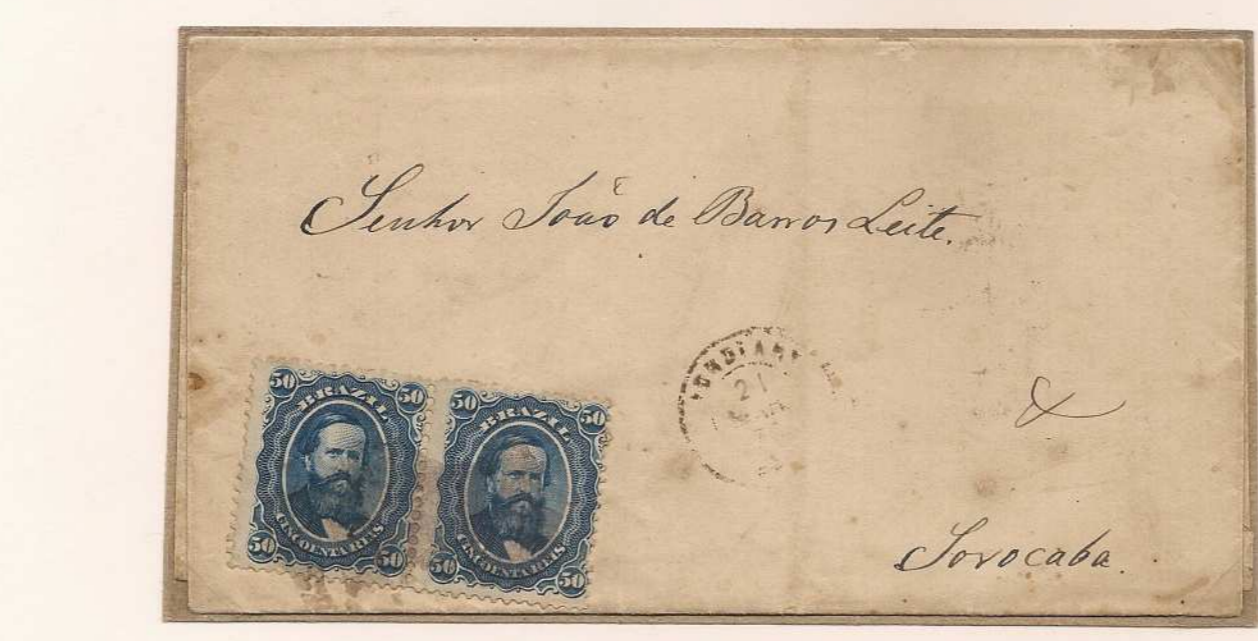 Senhor João de Barros Leite.
JUNDIAHY
21
MAR
&
Sorocaba.
50 50
BRAZIL
CINCOENTA REIS
50 50
50 50
BRAZIL
CINCOENTA REIS
50 50